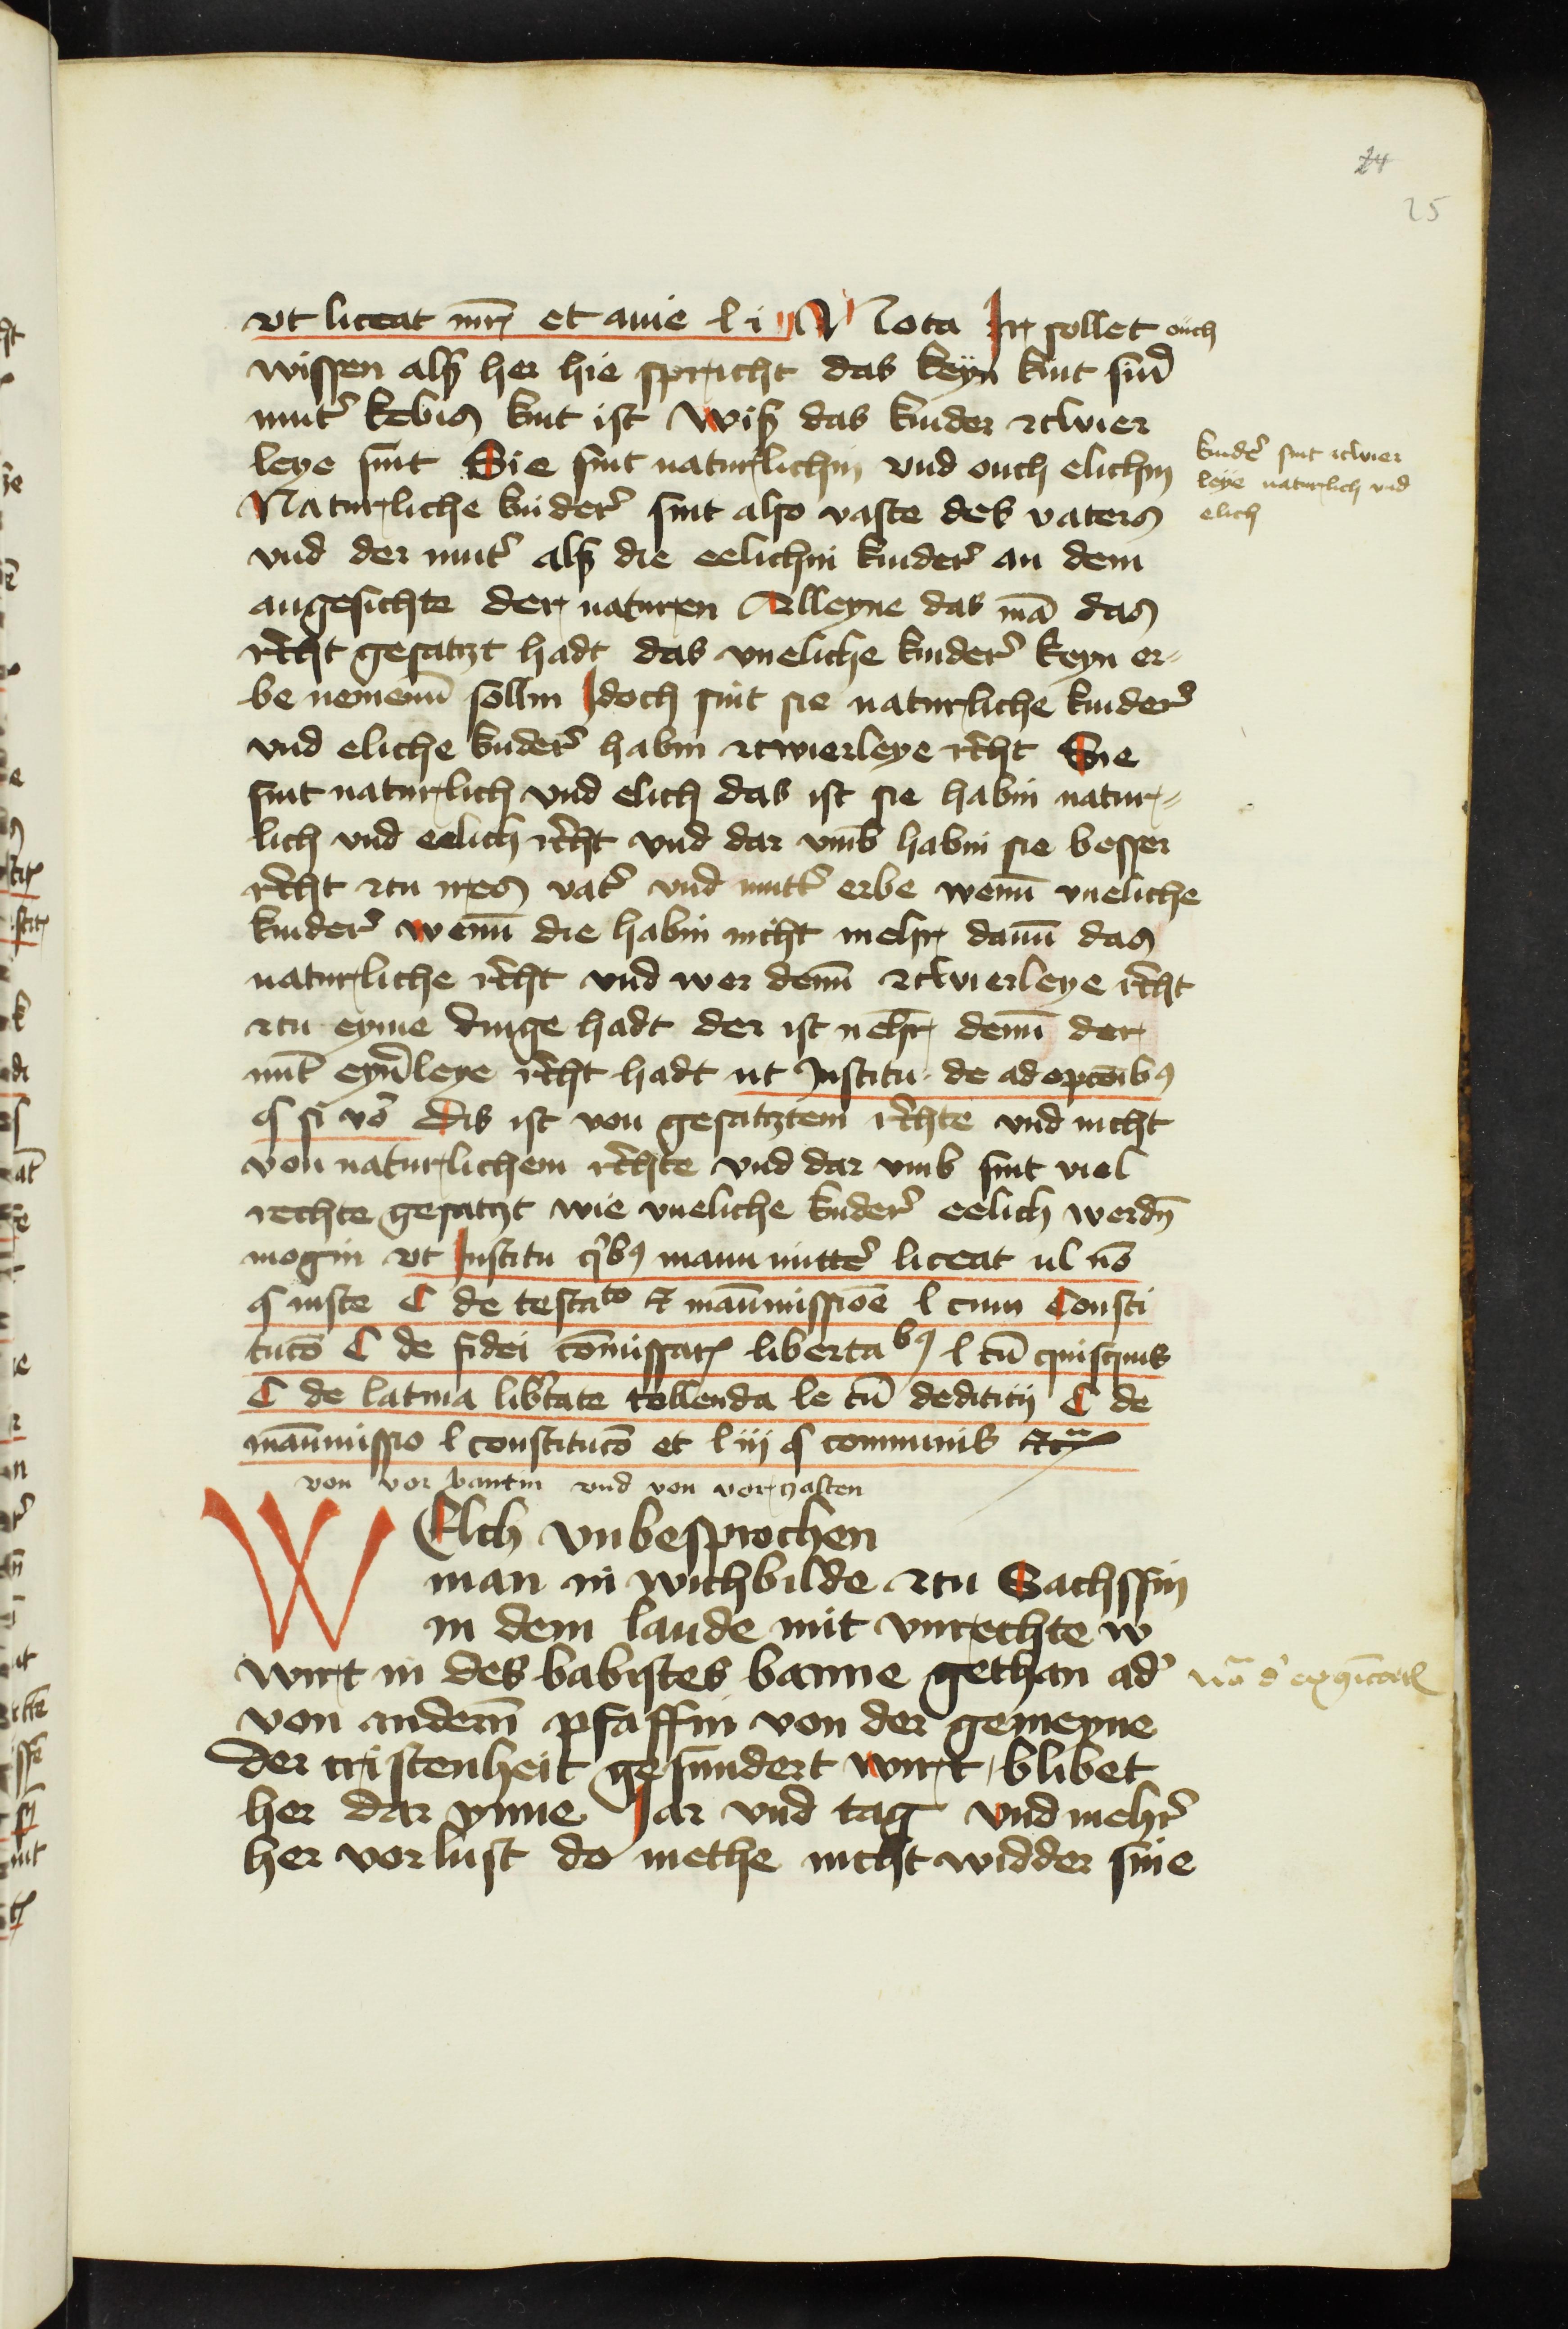 24
25
vt liceat mr̄i et auie l i Nota Ir sollet ouch
wissen alß her hie spricht das keyn kint sinͬ
mutͬ kebis kint ist Wiß das kinder czwier
leye sint Sie sint naturlichin vnd ouch elichin
Naturliche kinderͬ sint also vaste des vaters
vnd der mutͬ alß die eelichin kinderͬ an dem
angesichte der naturen Alleyne das mā das
rĕcht gesatzt hadt das vneliche kinderͬ keyn er-
be nemenn̄ sollin Idoch sint sie naturliche kinderͬ
vnd eliche kinderͬ habin czwierleye rĕcht Sie
sint naturlich vnd elich das ist sie habin natur-
lich vnd eelich rĕcht vnd dar vmb habin sie besser
rĕcht czu ires vatͬ vnd muttͬ erbe wenn̄ vneliche
kinderͬ wenn̄ die habin nicht mehr dann̄ das
naturliche rĕcht vnd wer denn̄ czwierleye rĕcht
czu eyme dinge hadt der ist nehr denn̄ der
nūt eynͬleye rĕcht hadt ut Institu de adopcōibꝯ
§ si vō Dis ist von gesatztem rĕchte vnd nicht
von naturlichem rĕchte vnd dar vmb sint viel
rechte gesatzt wie vneliche kinderͬ eelich werdn̄
mogin vt Institu qͥbꝯ manumittͬe liceat ul nō
§ iuste C de testato et manūmissiōe l cum Consti
tucō C de fidei cōmissar libertabꝯ l cū quisquis
C de latina libͬtate tollenda le cū dediticij C de
manūmissio l constitucō et l iij § communis etc
von vor bantin vnd von vorczalten
WElch vnbesprochen
man in wichbilde czu Sachssin
in dem lande mit vnrechte w
wirt in des babistes banne gethan adͬ
von andern̄ pfaffin von der gemeyne
der cristenheit gesundert wirt blibet
her dar ynne Jar vnd tag vnd mehrͬ
her vorlust do methe nicht widder sine
kindͬ sint czwier
leye naturlich vnd
elich